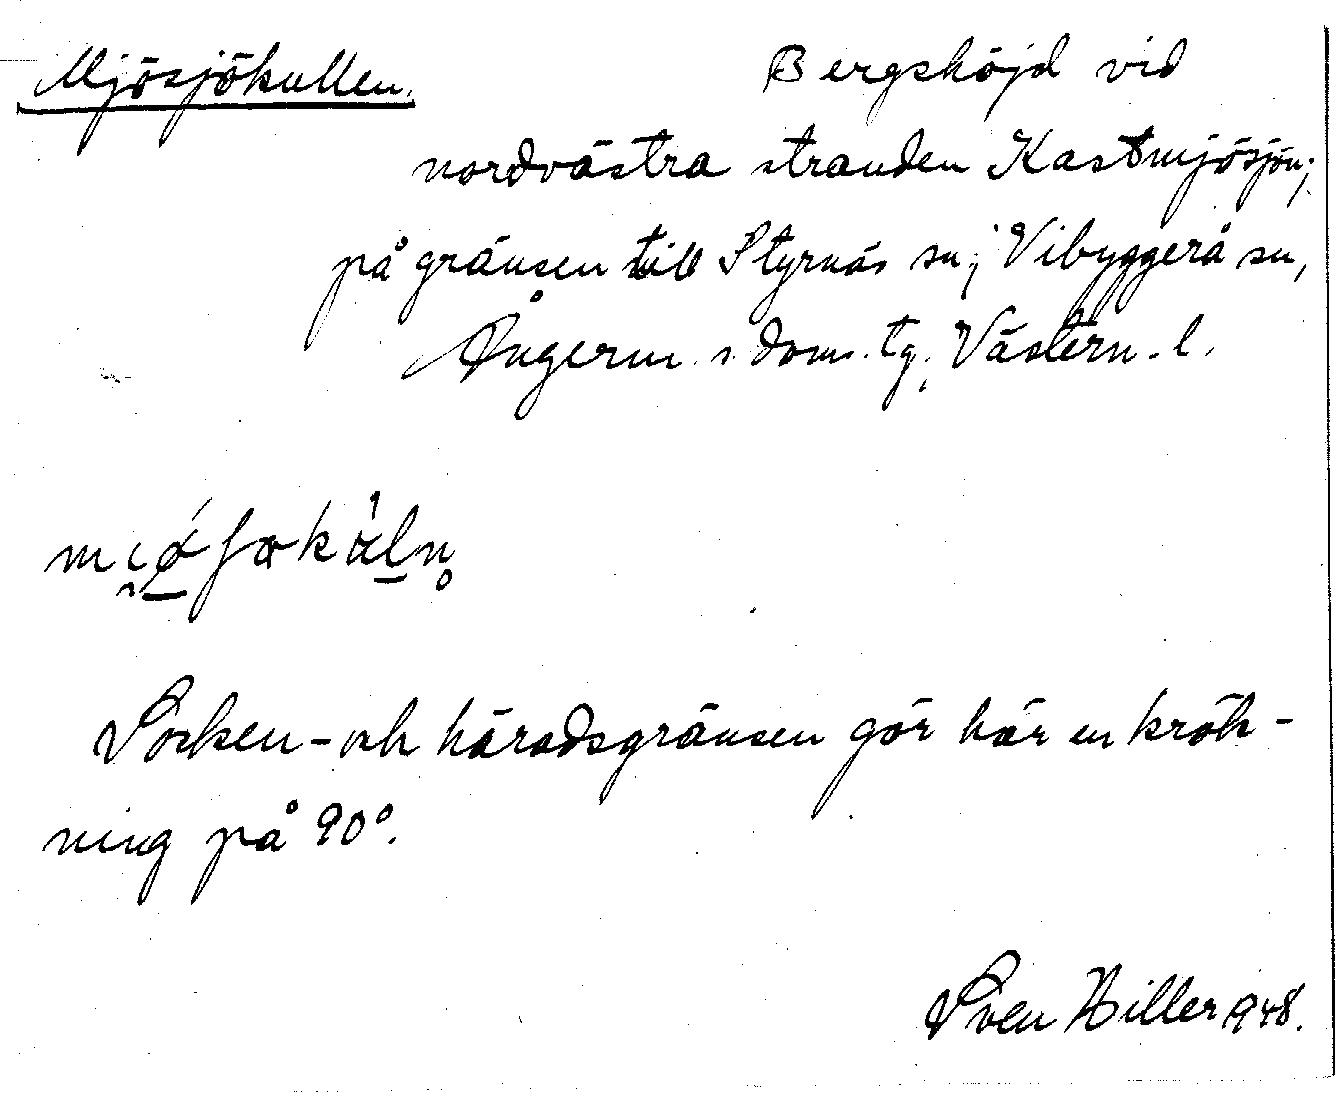 Mjösjökullen. Bergshöjd vid
nordvästra stranden Kastmjösjön;
på gränsen till Styrnäs sn; Vibyggerå sn,
Ångerm. s. doms. tg, Västern. l.
Socken- och häradsgränsen gör här en krök-
ning på 90°.
Sven Hiller 1948.